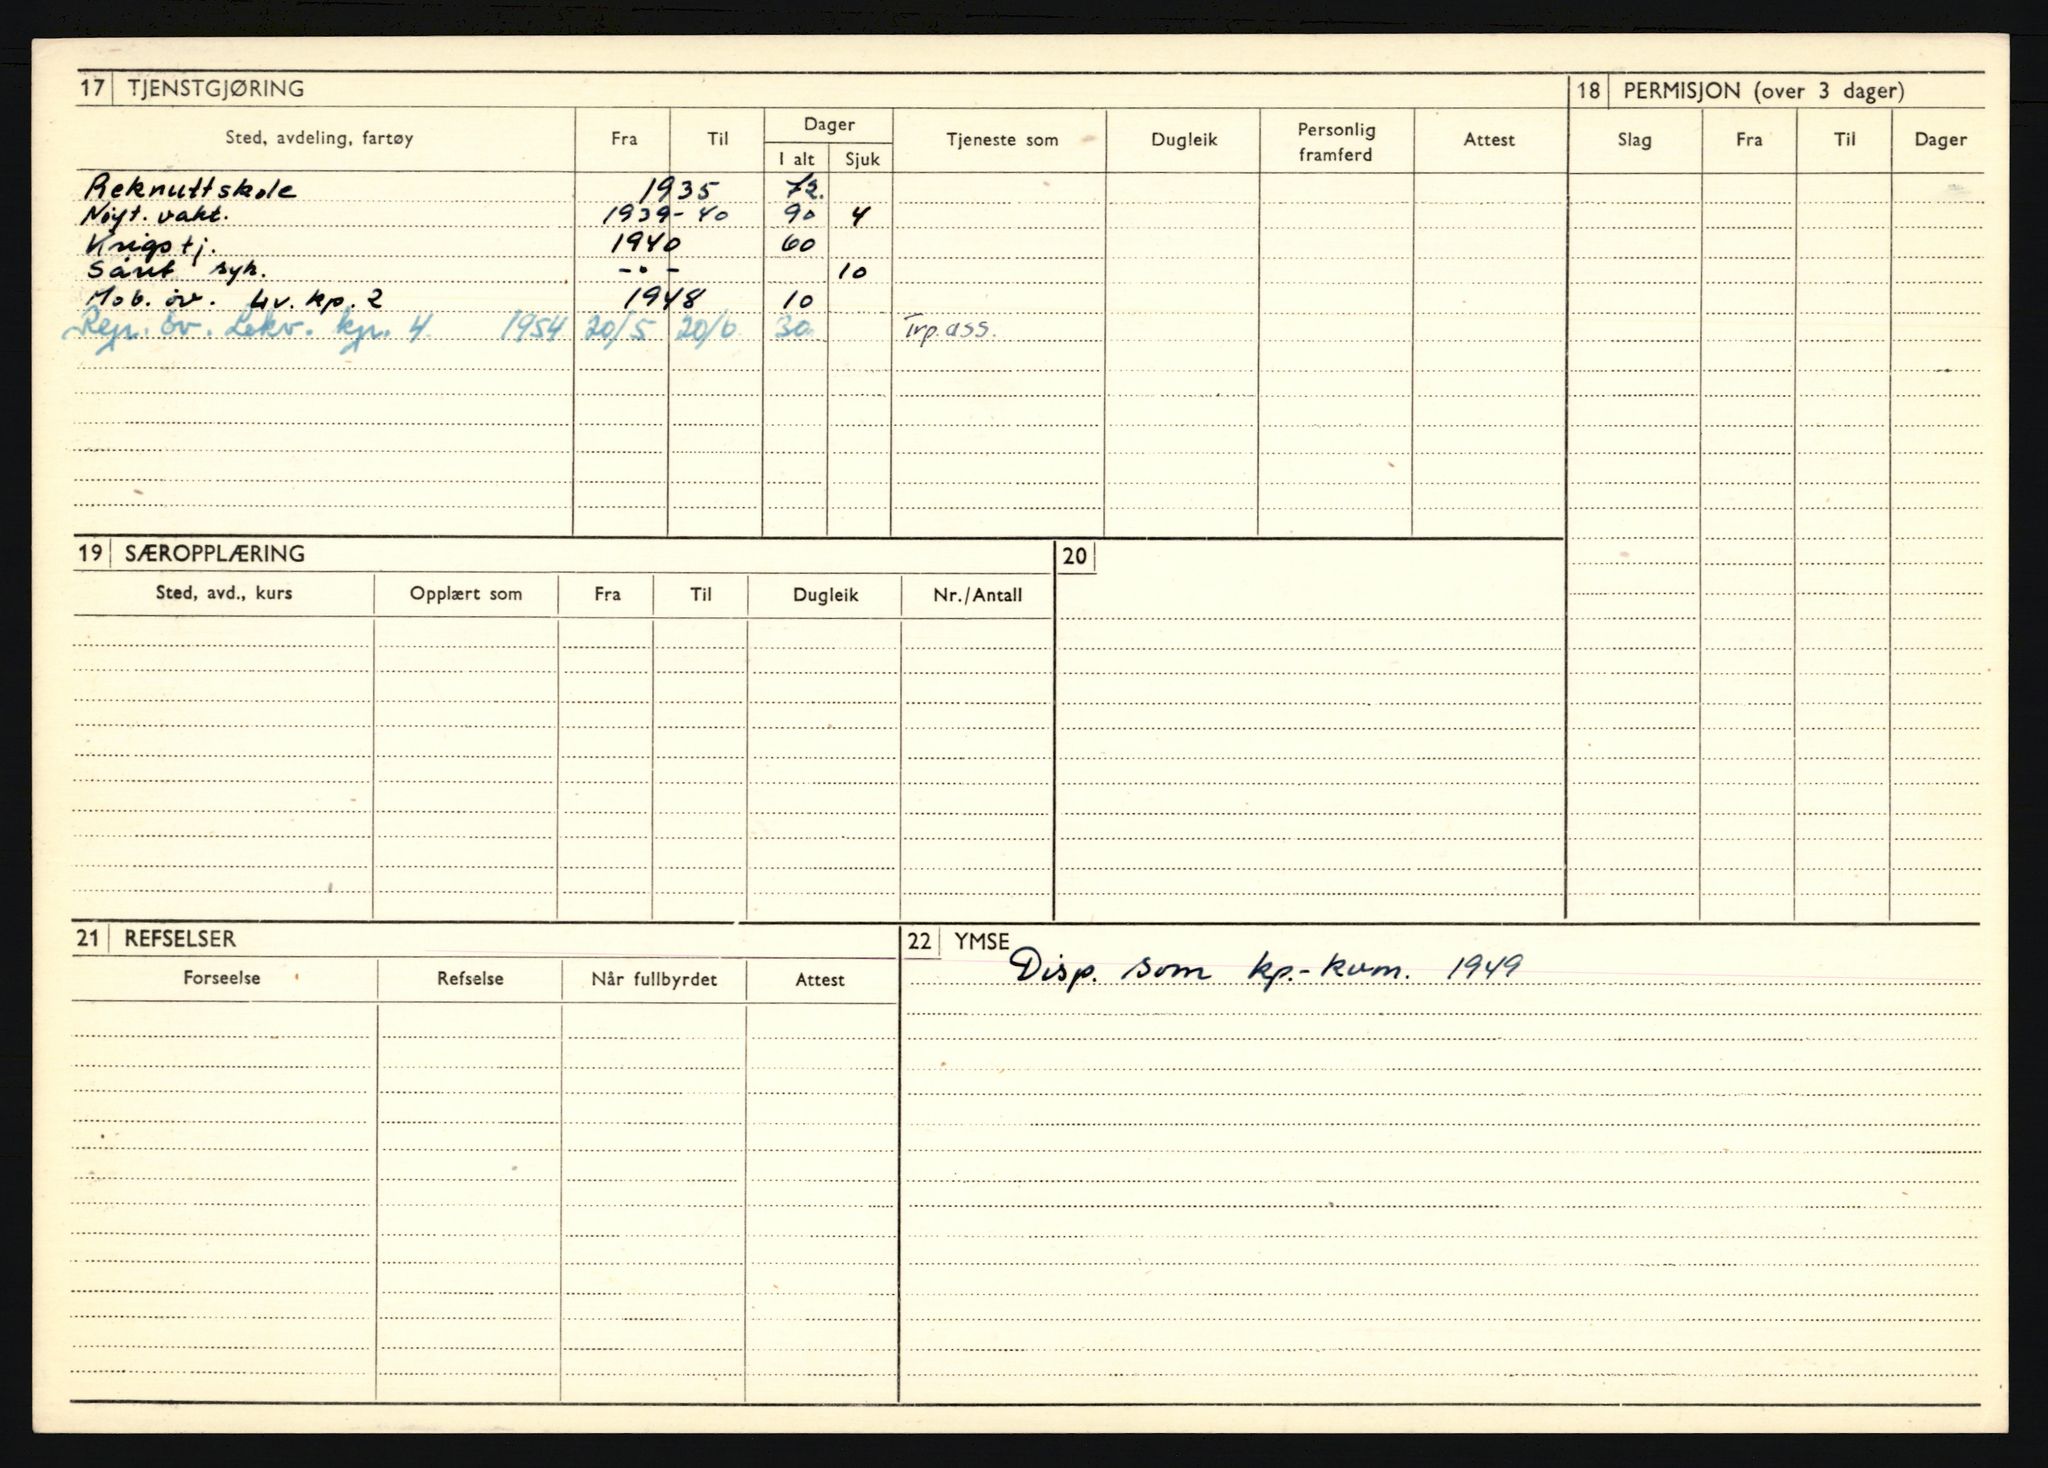 17 TJENSTGJØRING
Sted, avdeling, fartøy Fra Til Dager I alt Sjuk Tjeneste som Dugleik Personlig framferd Attest
Reknuttskole 1935 72.
Nøyt. vakt. 1939-40 90 4
Krigstj. 1940 60
Såret syk. -"- 10
Mob. øv. Lv. kp. 2 1948 10
Rep. øv. Lekv. kp. 4 1954 20/5 20/6 30 Trp.ass.
18 PERMISJON (over 3 dager)
Slag Fra Til Dager
19 SÆROPPLÆRING
Sted, avd., kurs Opplært som Fra Til Dugleik Nr./Antall
20
21 REFSELSER
Forseelse Refselse Når fullbyrdet Attest
22 YMSE
Disp. som kp.-kvm. 1949